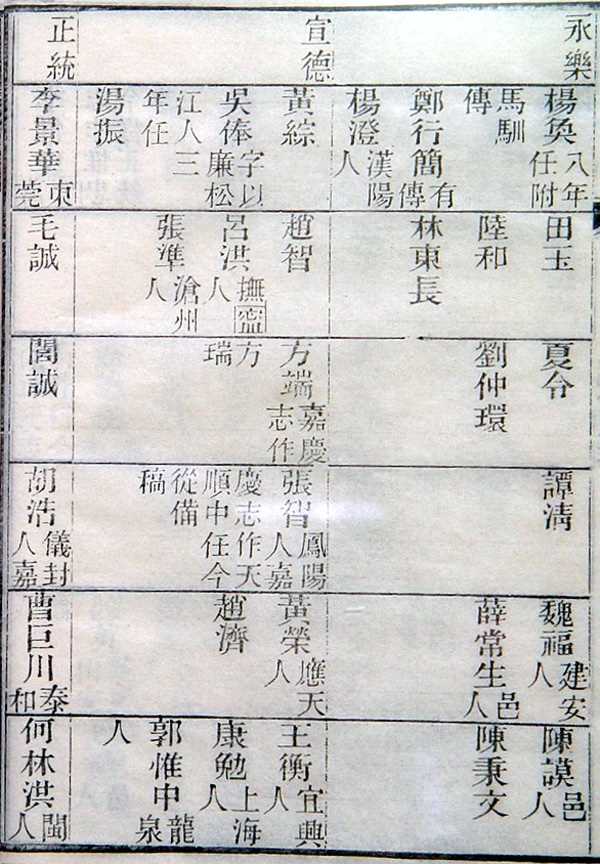 永樂
宣德
正統
楊奐八年任附
馬馴傳
鄭行簡有傳
楊澄漢陽人
黃綜
吳俸字以廉松
江人三年任
湯振
李景華東莞
田玉
陸和
林東長
趙智
呂洪撫甯人
張準滄州人
毛誠
夏令
劉仲環
方端嘉慶志作
方瑞
閻誠
譚淸
張智鳳陽人嘉
慶志作天順中任今
從備稿
胡浩儀封人嘉
魏福建安人
薛常生邑人
黃榮應天人
趙濟
曹巨川泰和
陳謨邑人
陳秉文
王衡宜興人
康勉上海人
郭惟中龍泉
人
何林洪閩人